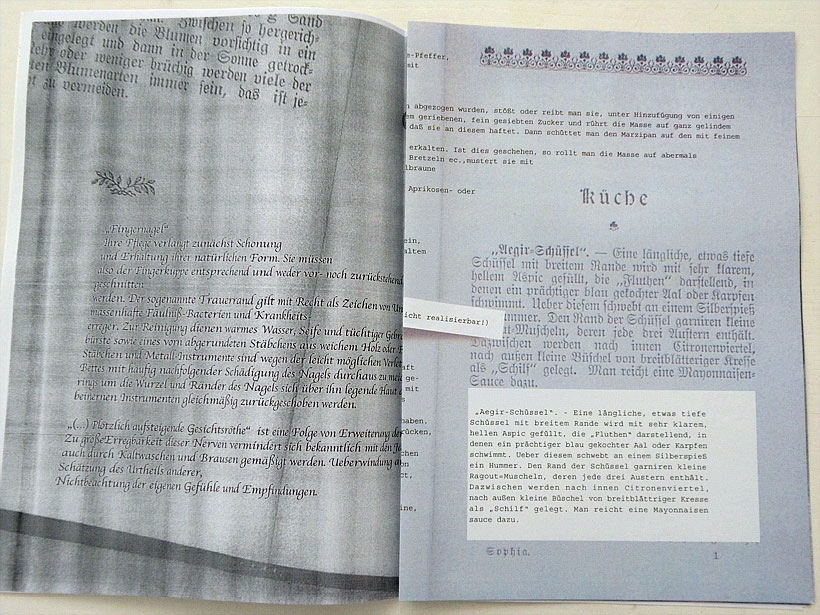 g Sand
Zwischen so hergerich-
werden die Blumen vorsichtig in ein
eingelegt und dann in der Sonne getrock-
oder weniger brüchig werden viele der
Blumenarten immer sein, das ist je-
zu vermeiden.
„Fingernägel“
Ihre Pflege verlangt zunächst Schonung
und Erhaltung ihrer natürlichen Form. Sie müssen
also der Fingerkuppe entsprechend und weder vor- noch zurückstehend
geschnitten
werden. Der sogenannte Trauerrand gilt mit Recht als Zeichen von
massenhafte Fäulniß-Bacterien und Krankheits-
erreger. Zur Reinigung dienen warmes Wasser, Seife und tüchtiger
bürste sowie eines vorn abgerundeten Stäbchens aus weichem Holz oder
Stäbchen und Metall-Instrumente sind wegen der leicht möglichen
Bettes mit häufig nachfolgender Schädigung des Nagels durchaus zu
rings um die Wurzel und Ränder des Nagels sich über ihn legende Haut
beinernen Instrumenten gleichmäßig zurückgeschoben werden.
„(...) Plötzlich aufsteigende Gesichtsröthe“ ist eine Folge von Erweiterung der
Zu große Erregbarkeit dieser Nerven vermindert sich bekanntlich mit den
auch durch Kaltwaschen und Brausen gemäßigt werden. Ueberwindung
Schätzung des Urtheils anderer,
Nichtbeachtung der eigenen Gefühle und Empfindungen.
-Pfeffer,
mit
abgezogen wurden, stößt oder reibt man sie, unter Hinzufügung von einigen
em geriebenen, fein gesiebten Zucker und rührt die Masse auf ganz gelindem
daß sie an diesem haftet. Dann schüttet man den Marzipan auf den mit feinem
erkalten. Ist dies geschehen, so rollt man die Masse auf abermals
Bretzeln ec.,mustert sie mit
lbraune
Aprikosen- oder
ein,
altem
icht realisierbar!)
Küche
„Aegir-Schüssel“. — Eine längliche, etwas tiefe
Schüssel mit breitem Rande wird mit sehr klarem,
hellem Aspic gefüllt, die „Fluthen“ darstellend, in
denen ein prächtiger blau gekochter Aal oder Karpfen
schwimmt. Ueber diesem schwebt an einem Silberspieß
ummer. Den Rand der Schüssel garniren kleine
t-Muscheln, deren jede drei Austern enthält.
Dazwischen werden nach innen Citronenviertel,
nach außen kleine Büschel von breitblättriger Kresse
als „Schilf“ gelegt. Man reicht eine Mayonnaisen-
Sauce dazu.
„Aegir-Schüssel“. - Eine längliche, etwas tiefe
Schüssel mit breitem Rande wird mit sehr klarem,
hellen Aspic gefüllt, die „Fluthen“ darstellend, in
denen ein prächtiger blau gekochter Aal oder Karpfen
schwimmt. Ueber diesem schwebt an einem Silberspieß
ein Hummer. Den Rand der Schüssel garniren kleine
Ragout-Muscheln, deren jede drei Austern enthält.
Dazwischen werden nach innen Citronenviertel,
nach außen kleine Büschel von breitblättriger Kresse
als „Schilf“ gelegt. Man reicht eine Mayonnaisen
sauce dazu.
Sophia. 1